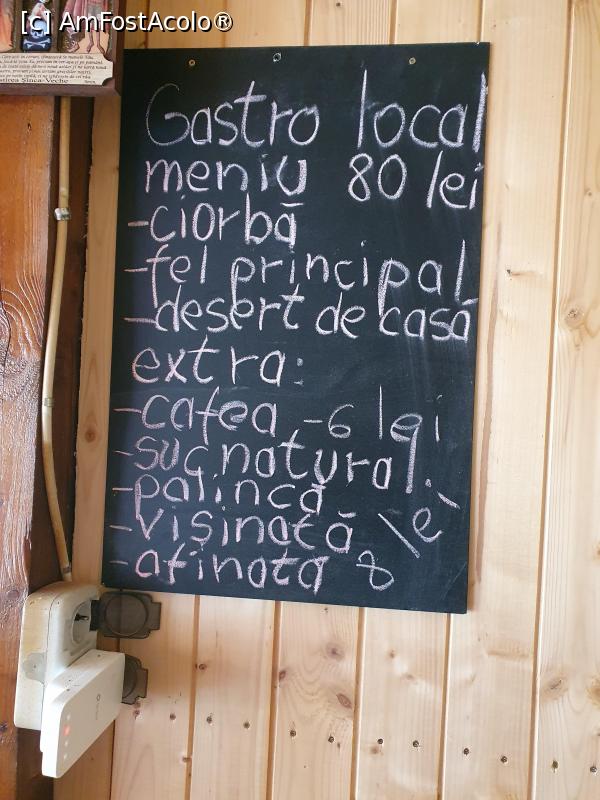 [c] AmFostAcolo®
Sinca-Veche
Gastro local
meniu 80 lei
-ciorbă
-fel principal
-desert de casă
extra:
-cafea -6 lei
-suc natural.
-palincă
-vișinată
-afinata 8 lei